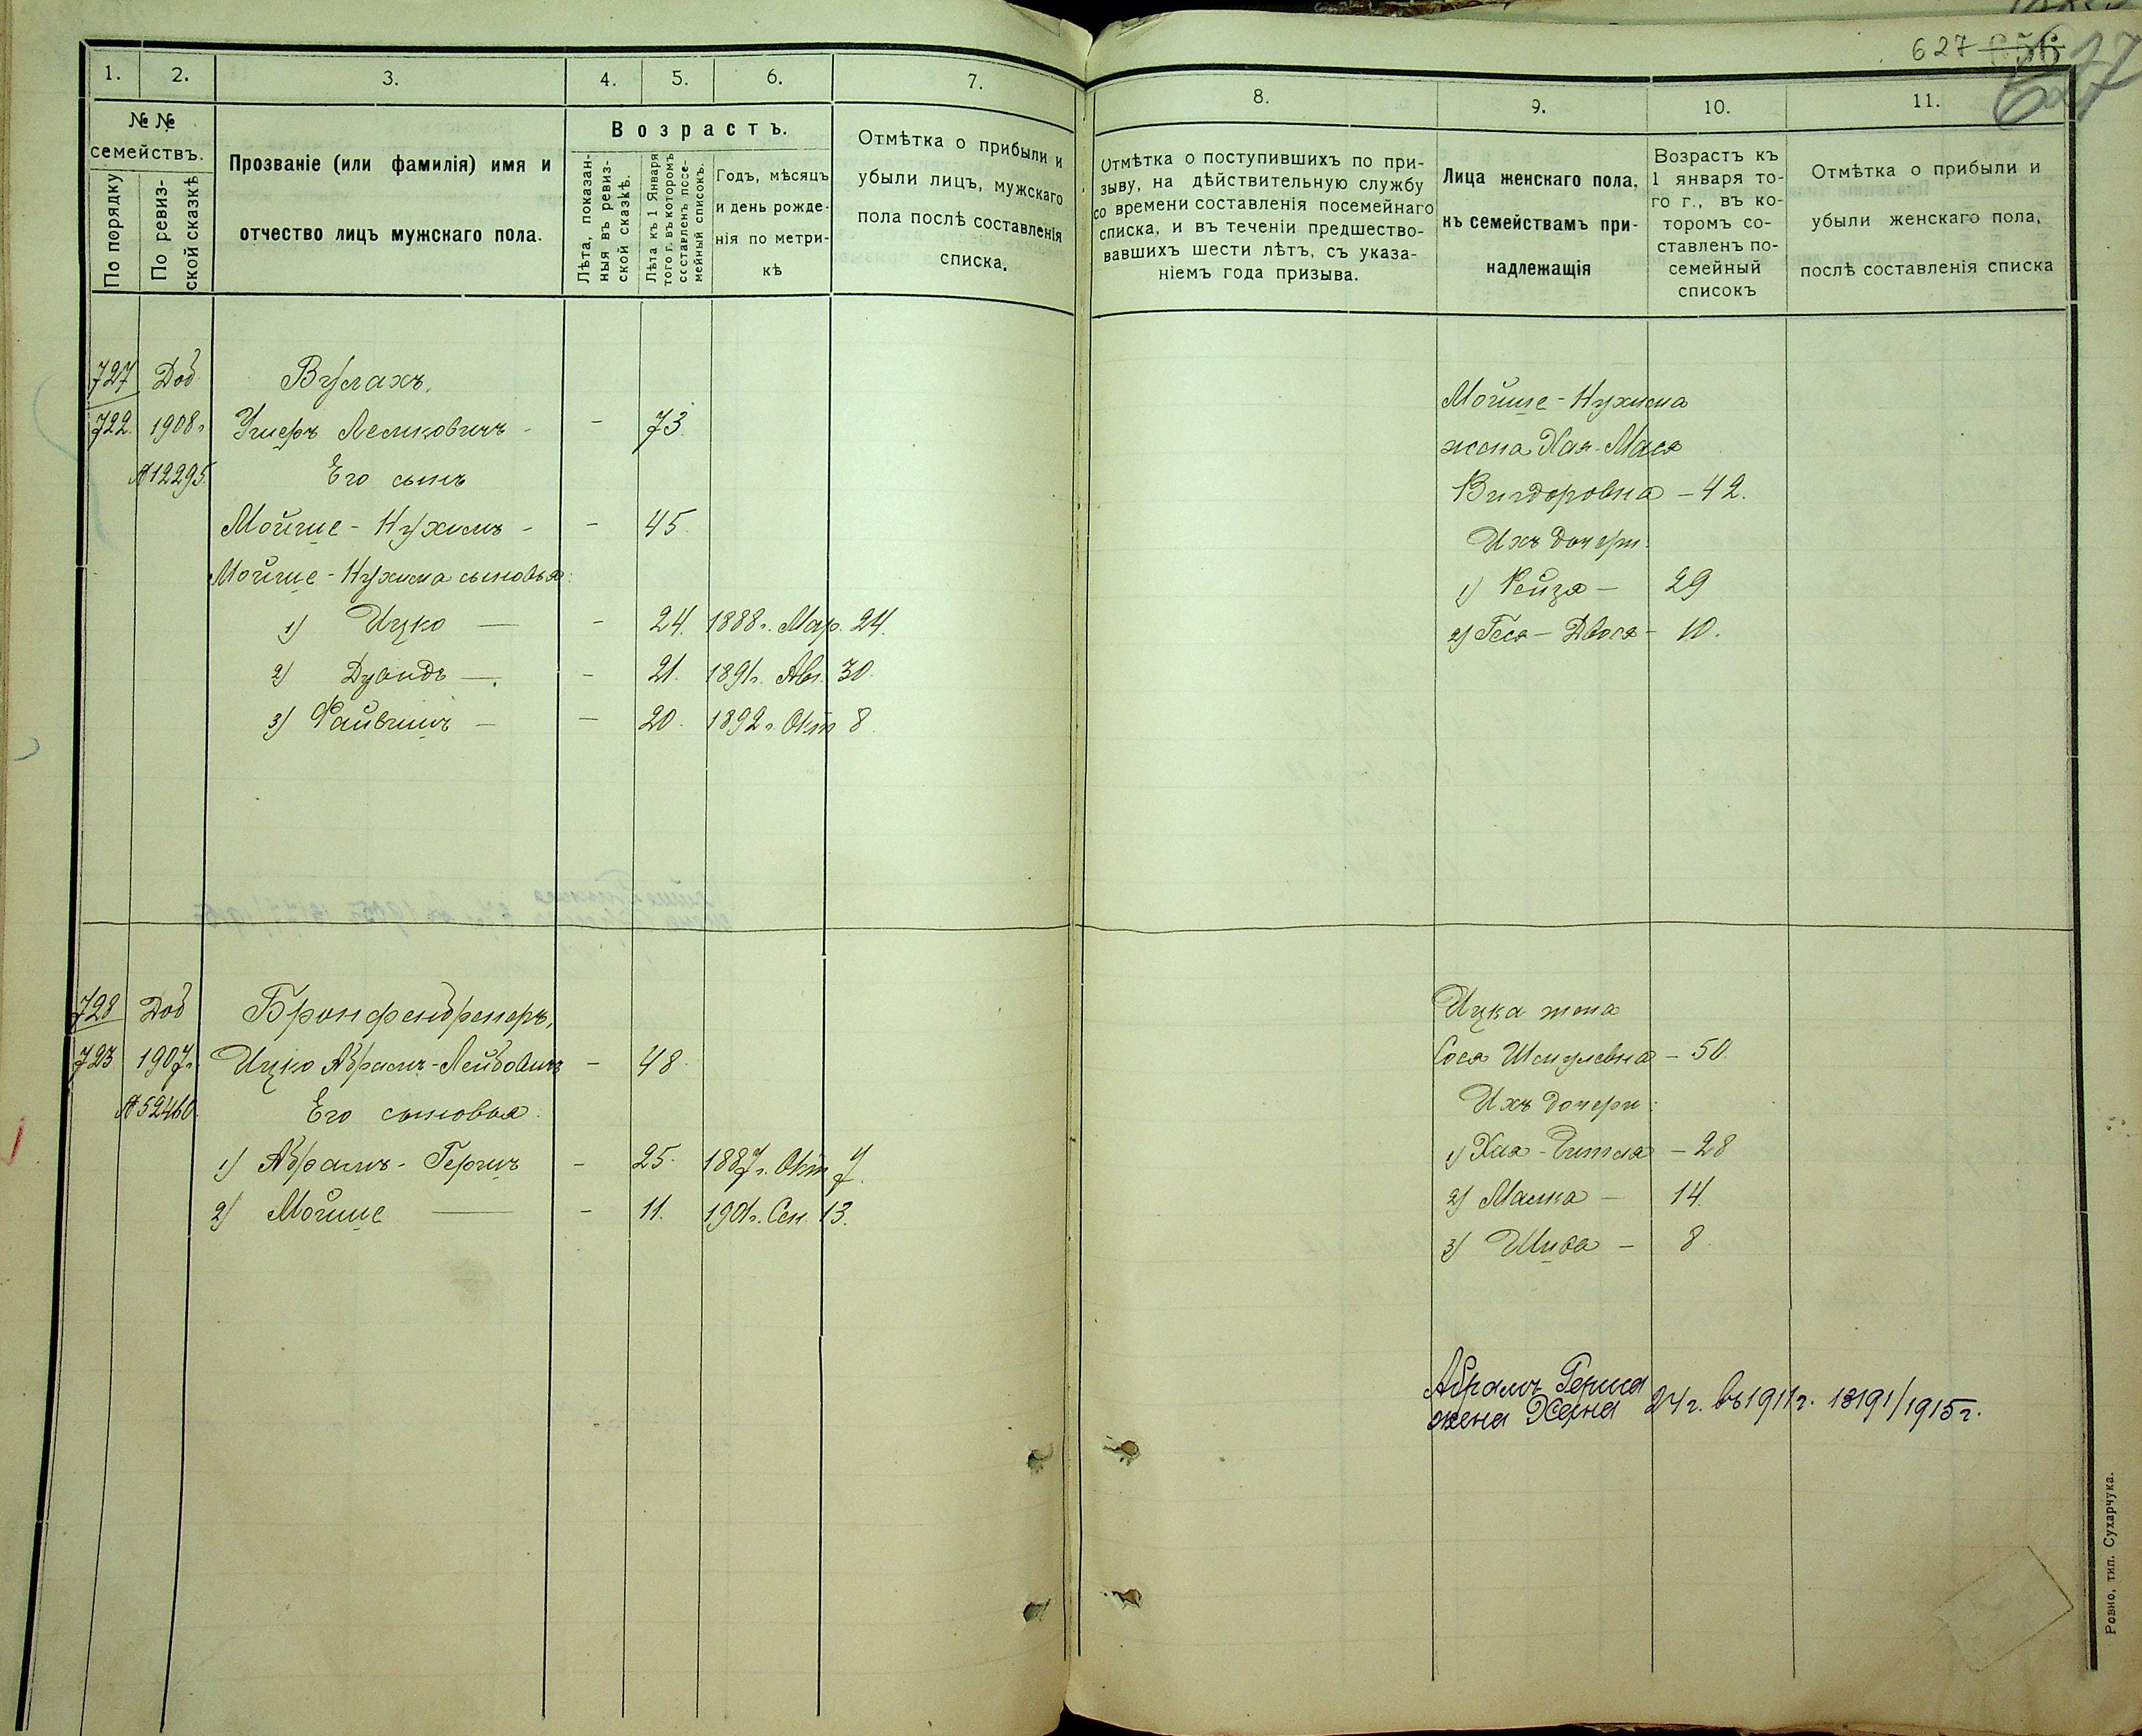 627 656
627
1. 2. 3. 4. 5. 6. 7.
№ №
семействъ.
По порядку
По ревиз-
ской сказкѣ
Прозваніе (или фамилія) имя и
отчество лицъ мужскаго пола.
Возрастъ.
Лѣта, показан-
ныя въ ревиз-
ской сказкѣ.
Лѣта къ 1 Января
того г. въ которомъ
составленъ посе-
мейный списокъ.
Годъ, мѣсяцъ
и день рожде-
нія по метри-
кѣ
Отмѣтка о прибыли и
убыли лицъ, мужскаго
пола послѣ составленія
списка.
727 Доб Вулахъ,
722 1908г. Ушеръ Лемковичъ - - 73
№12295. Его сынъ
Мойше - Нухимъ - - 45
Мойше - Нухима сыновья:
1) Ицко — - 24. 1888г. Мар. 24.
2) Дувидъ — - 21. 1891г. Авг. 30.
3) Файвишъ — - 20. 1892г. Окт 8
728 Доб Бронфенбренеръ,
723 1907г. Ицко Абрамъ-Лейбовичъ - 48
№52460. Его сыновья.
1) Абрамъ - Гершъ - 25. 1887г. Окт 7.
2) Мойше — - 11. 1901г. Сен. 13.
8. 9. 10. 11.
Отмѣтка о поступившихъ по при-
зыву, на дѣйствительную службу
со времени составленія посемейнаго
списка, и въ теченіи предшество-
вавшихъ шести лѣтъ, съ указа-
ніемъ года призыва.
Лица женскаго пола,
къ семействамъ при-
надлежащія
Возрастъ къ
1 января то-
го г., въ ко-
торомъ со-
ставленъ по-
семейный
списокъ
Отмѣтка о прибыли и
убыли женскаго пола,
послѣ составленія списка
Мойше - Нухима
жена Хая - Мася
Вигдоровна - 42.
Ихъ дочери:
1) Рейзя — 29
2) Геся - Двося - 10.
Ицка жена
Сося Шмулевна - 50.
Ихъ дочери:
1) Хая - Гитля - 28
2) Малка — 14.
3) Шива — 8.
Абрамъ Герша
жена Хейна 24 г. въ 1911 г. 13191/1915 г.
Ровно, тип. Сухарчука.